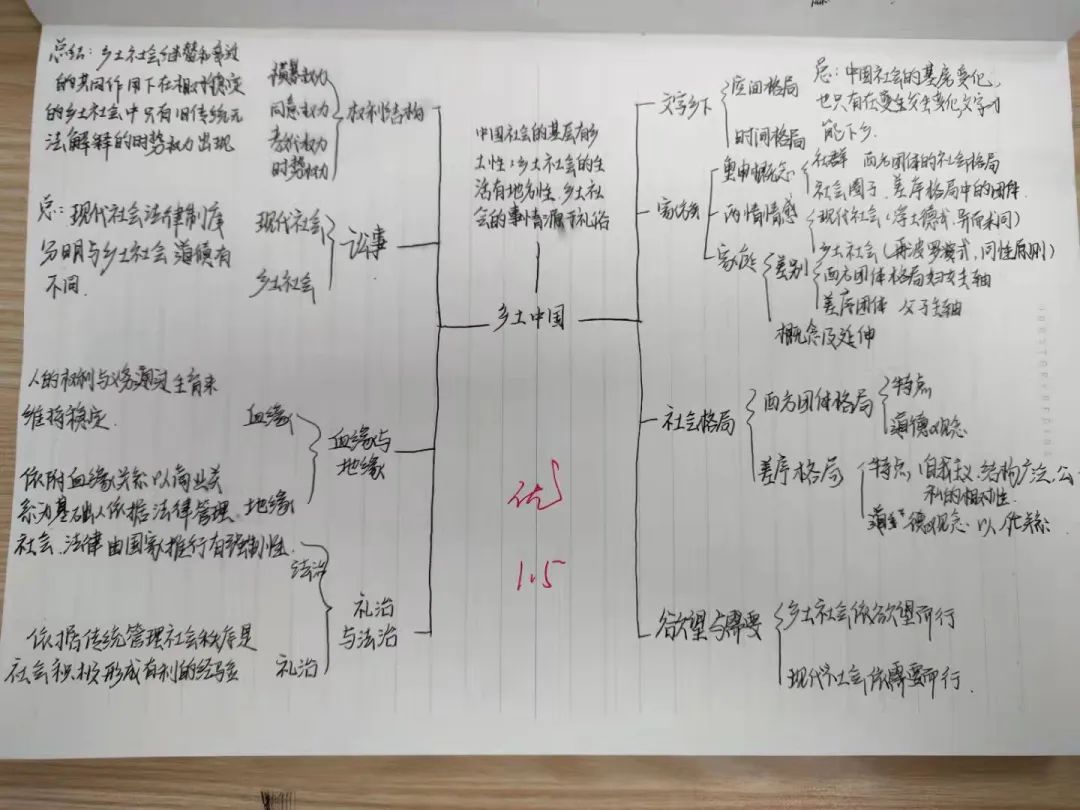 总结：乡土社会继替和变迁
的共同作用下在相对稳定
的乡土社会中只有旧传统无
法解释的时势权力出现
横暴权力
同意权力
长老权力
时势权力
权利结构
总：现代社会法律制度
分明与乡土社会道德有
不同.
现代社会
乡土社会
讼事
人的权利与义务通过生育来
维持稳定.
血缘
依附血缘关系以商业关
系为基础
地缘
血缘与
地缘
人依据法律管理
社会.法律由国家推行有强制性.
法治
依据传统管理社会秩序是
社会积极形成有利的经验
礼治
礼治
与法治
中国社会的基层有乡
土性；乡土社会的生
活有地方性.乡土社
会的事情源于礼俗
乡土中国
优
1.5
文字乡下
空间格局
时间格局
总：中国社会的基层变化，
也只有在发生变化文字才
能下乡.
家族
重申概念
社群 西方团体的社会格局
社会圈子.差序格局中的团体.
两情情感
现代社会（浮士德式.异而求同）
乡土社会（阿波罗模式，同性原则）
家族
差别
西方团体格局妇女主轴
差序团体 父子主轴
概念及延伸
社会格局
西方团体格局
特点
道德观念
差序格局
特点，自我主义.结构广泛.公
私的相对性.
道德观念
欲望与需要
乡土社会依欲望而行
现代社会依需要而行.